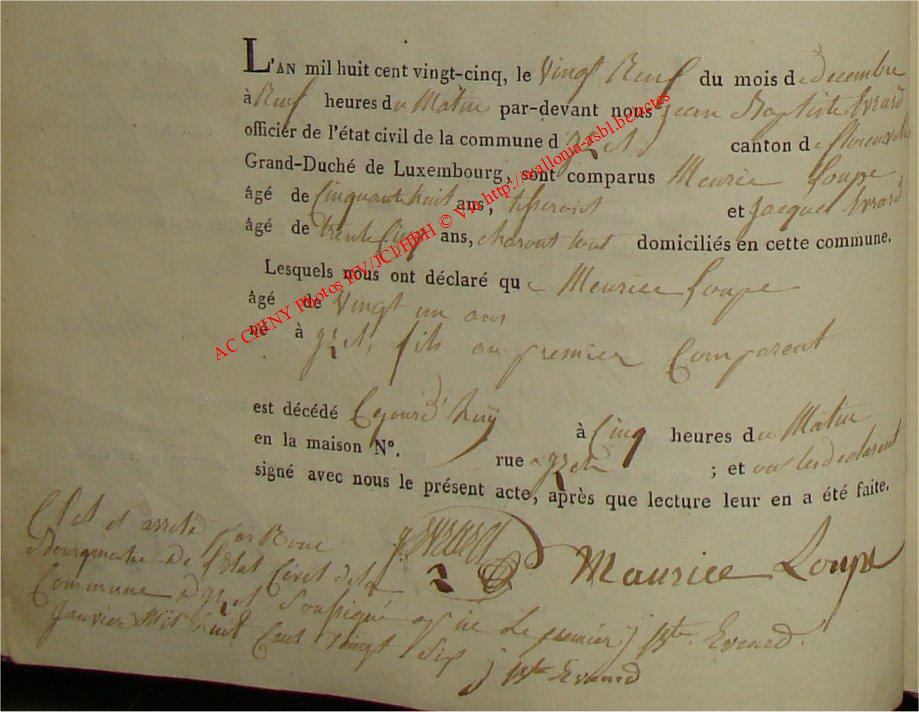 L'AN mil huit cent vingt-cinq, le vingt Neuf du mois de decembre
à Neuf heures du Matin par-devant nous jean Baptiste Evrard
officier de l'état civil de la commune d'Izel canton de florenville
Grand-Duché de Luxembourg, sont comparus Meurice Loupe
âgé de Cinquante huit ans, tisserant et Jacques Evrard
âgé de trente Cinq ans, domiciliés en cette commune.
Lesquels nous ont déclaré que Meurice Loupe
âgé de vingt un ans
né à izel, fils au premier Comparent
est décédé à Cinq heures du Matin
en la maison N°. rue ; et
signé avec nous le présent acte, après que lecture leur en a été faite.
J. Evrard Maurice Loupe
Clos et arreté par Nous
Bourgmestre de l'Etat Civil de la
Commune d'izel Soussigné le premier j Bte Evrard
Janvier Mil huit Cent vingt Six j Bte Evrard
AC CHINY Photos EV/JCI/HBH © Via http://wallonia-asbl.be/actes